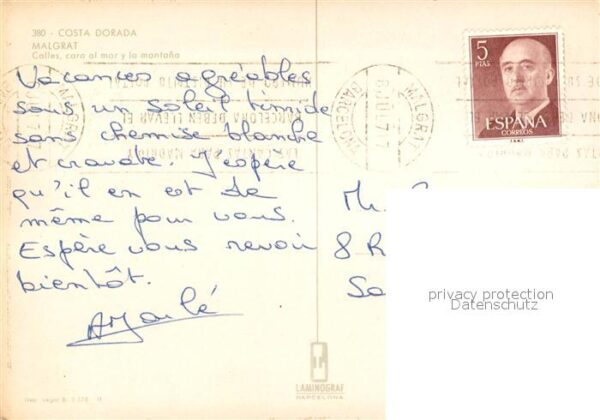 380 - COSTA DORADA
MALGRAT
Calles, cara al mar y la montaña
Vacances agréables
sous un soleil timide
sans chemise blanche
et cravate. J'espère
qu'il en est de
même pour vous.
Espère vous revoir
bientôt.
5
PTAS
ESPAÑA
CORREOS
MALGRAT
BARCELONA
M.
8 R
Sa
privacy protection
Datenschutz
LAMINOGRAF
BARCELONA